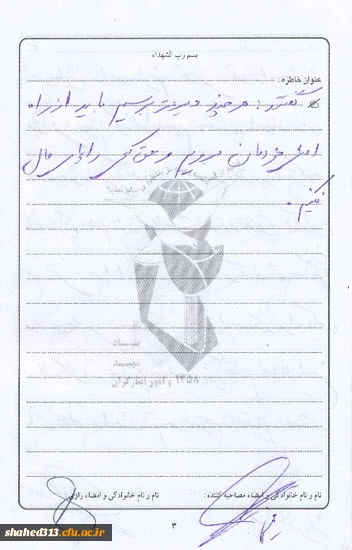 بسم رب الشهداء
عنوان خاطره :
گفتند : هر چند دیرتر برسیم باید از راه
اصلی خودمان برویم و حق کسی را پای مال
نکنیم .
بنیاد
شهید
۱۳۵۸
و امور ایثارگران
نام و نام خانوادگی و امضاء مصاحبه کننده :
نام و نام خانوادگی و امضاء راوی :
۳
shahed313.cfu.ac.ir